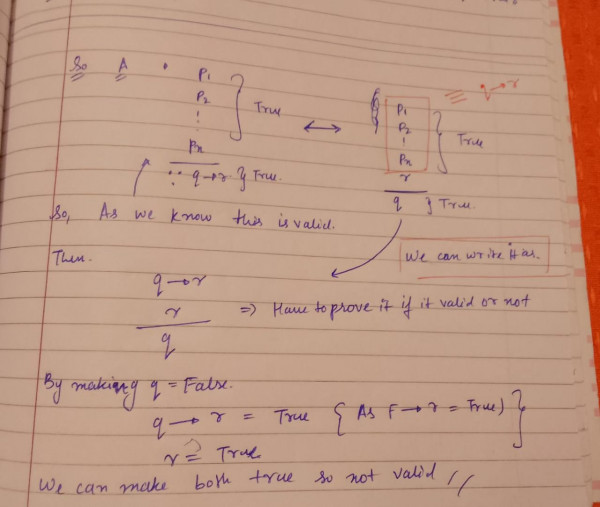 So A • P1
P2
⋮
Pn
∴ q → r } True.
} True
↔
P1
P2
⋮
Pn
r
q } True.
} True
≡ q → r
So, As we know this is valid.
We can write it as.
Then.
q → r
r
q
⇒ Have to prove it if it valid or not
By making q = False.
q → r = True { As F → r = True) }
r = True
We can make both true so not valid //